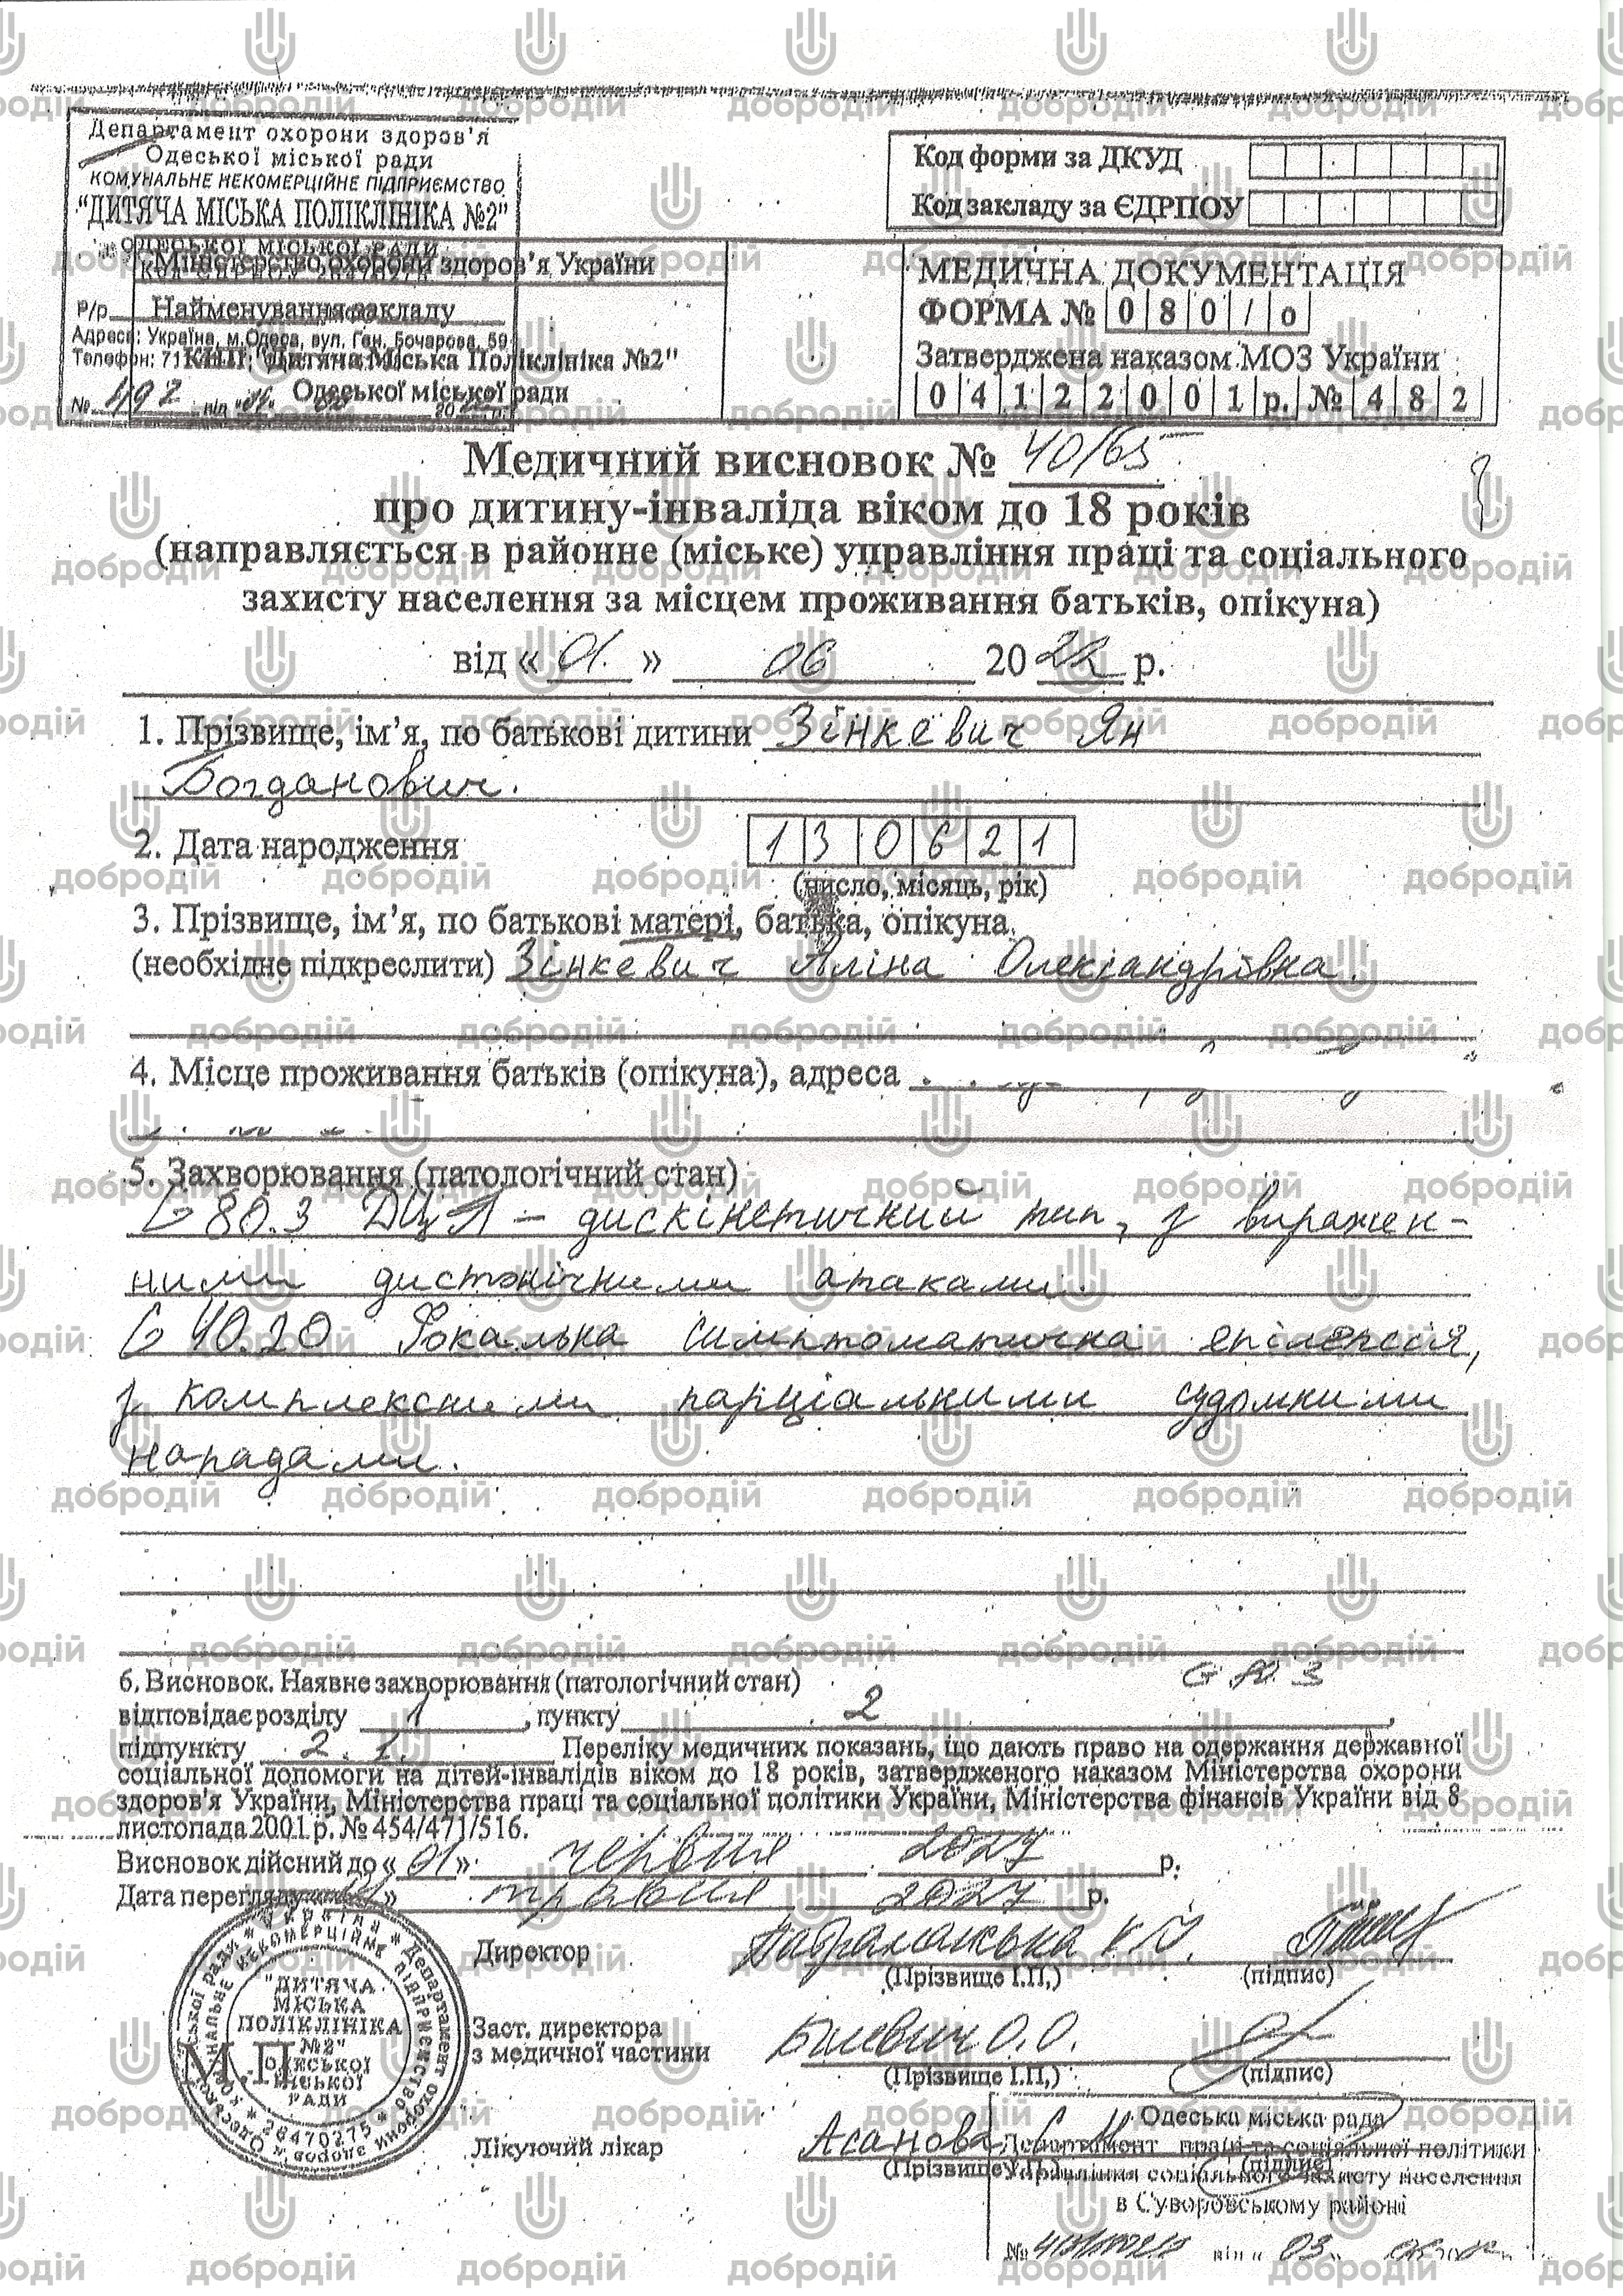 Департамент охорони здоров'я
Одеської міської ради
КОМУНАЛЬНЕ НЕКОМЕРЦІЙНЕ ПІДПРИЄМСТВО
"ДИТЯЧА МІСЬКА ПОЛІКЛІНІКА №2"
ОДЕСЬКОЇ МІСЬКОЇ РАДИ
Міністерство охорони здоров'я України
Р/р
Найменування закладу
Адреса: Україна, м.Одеса, вул. Ген. Бочарова, 59
Телефон: 71
КНП "Дитяча Міська Поліклініка №2"
Одеської міської ради
№ 497 від
Код форми за ДКУД
Код закладу за ЄДРПОУ
МЕДИЧНА ДОКУМЕНТАЦІЯ
ФОРМА № 080/о
Затверджена наказом МОЗ України
04122001р. № 482
Медичний висновок № 40/65
про дитину-інваліда віком до 18 років
(направляється в районне (міське) управління праці та соціального
захисту населення за місцем проживання батьків, опікуна)
від « 01. » 06 2022 р.
1. Прізвище, ім'я, по батькові дитини Зінкевич Ян
Богданович.
2. Дата народження 130621
(число, місяць, рік)
3. Прізвище, ім'я, по батькові матері, батька, опікуна
(необхідне підкреслити) Зінкевич Аліна Олександрівна.
4. Місце проживання батьків (опікуна), адреса
5. Захворювання (патологічний стан)
G 80.3 ДЦП – дискінетичний тип, з виражен-
ними дистонічними атаками.
G 40.20 Фокальна симптоматична епілепсія,
з комплексними парціальними судомними
нападами.
6. Висновок. Наявне захворювання (патологічний стан) G 80.3
відповідає розділу 1, пункту 2,
підпункту 2.1. Переліку медичних показань, що дають право на одержання державної
соціальної допомоги на дітей-інвалідів віком до 18 років, затвердженого наказом Міністерства охорони
здоров'я України, Міністерства праці та соціальної політики України, Міністерства фінансів України від 8
листопада 2001 р. № 454/471/516.
Висновок дійсний до « 01 » червня 2027 р.
Дата перегляду » травня 2027 р.
Директор
(Прізвище І.П.,) (підпис)
Заст. директора
з медичної частини
(Прізвище І.П.,) (підпис)
Лікуючий лікар Асанова
(Прізвище І.П.,) (підпис)
М.П
"ДИТЯЧА
МІСЬКА
ПОЛІКЛІНІКА
№2"
ОДЕСЬКОЇ
МІСЬКОЇ
РАДИ
* Україна * Департамент охорони здоров'я Одеської міської ради
КОМУНАЛЬНЕ НЕКОМЕРЦІЙНЕ ПІДПРИЄМСТВО * 26470275 *
Одеська міська рада
Департамент праці та соціальної політики
Управління соціального захисту населення
в Суворовському районі
№ від « 03 »
добродій